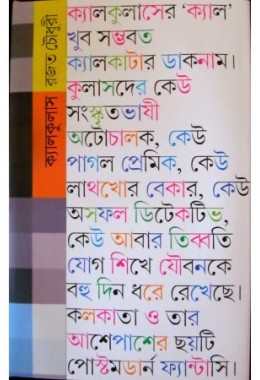 ক্যালকুলাস রজত চৌধুরী
ক্যালকুলাসের ‘ক্যাল’
খুব সম্ভবত
ক্যালকাটার ডাকনাম।
কুলাসদের কেউ
সংস্কৃতভাষী
অটোচালক, কেউ
পাগল প্রেমিক, কেউ
লাথখোর বেকার, কেউ
অসফল ডিটেকটিভ,
কেউ আবার তিব্বতি
যোগ শিখে যৌবনকে
বহু দিন ধরে রেখেছে।
কলকাতা ও তার
আশেপাশের ছয়টি
পোস্টমডার্ন ফ্যান্টাসি।